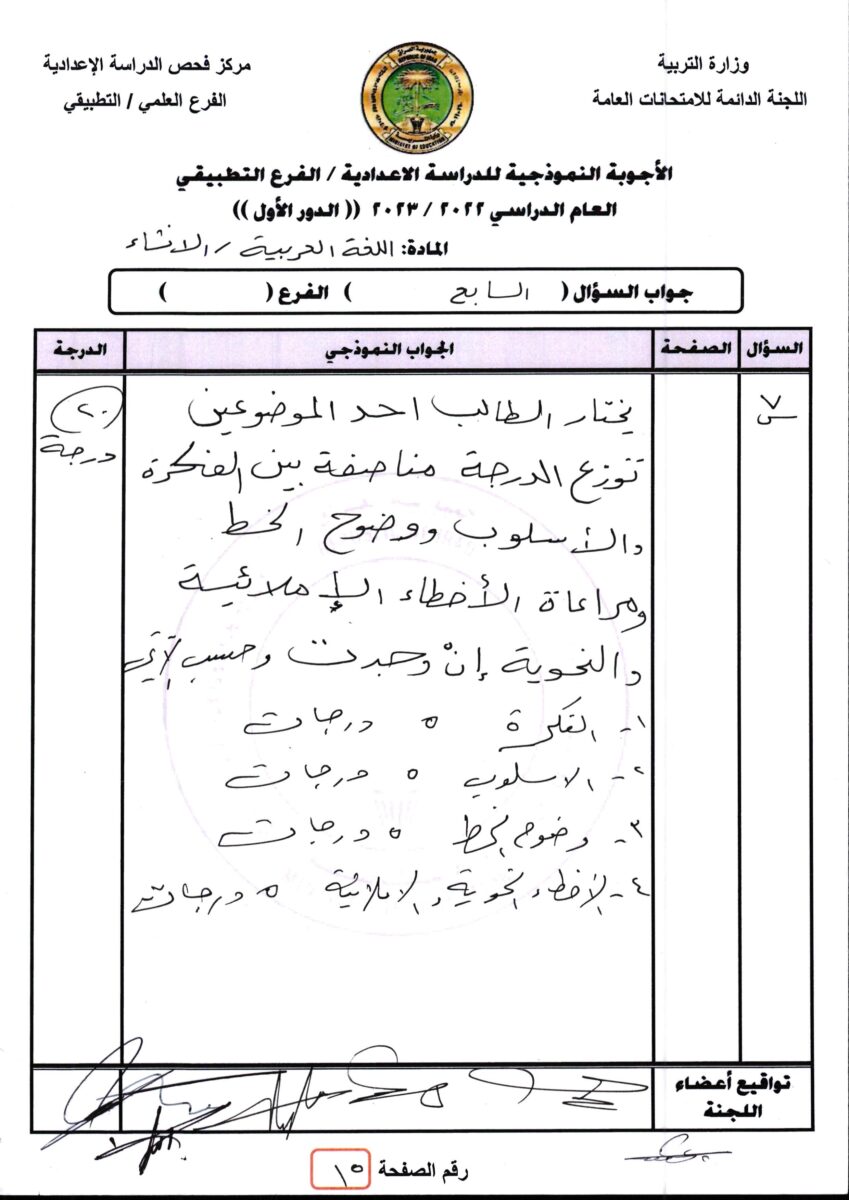 وزارة التربية
اللجنة الدائمة للامتحانات العامة
مركز فحص الدراسة الإعدادية
الفرع العلمي / التطبيقي
MINISTRY OF EDUCATION
الأجوبة النموذجية للدراسة الاعدادية / الفرع التطبيقي
العام الدراسي ٢٠٢٢ / ٢٠٢٣ (( الدور الأول ))
المادة: اللغة العربية / الانشاء
جواب السؤال ( السابع ) الفرع ( )
السؤال الصفحة الجواب النموذجي الدرجة
س٧ يختار الطالب احد الموضوعين ٢٠ درجة
تتوزع الدرجة مناصفة بين الفكرة
والأسلوب ووضوح الخط
ومراعاة الأخطاء الإملائية
والنحوية إنْ وجدت وحسب الآتي
١- الفكرة ٥ درجات
٢- الاسلوب ٥ درجات
٣- وضوح الخط ٥ درجات
٤- الأخطاء النحوية والاملائية ٥ درجات
تواقيع أعضاء
اللجنة
رقم الصفحة ١٥